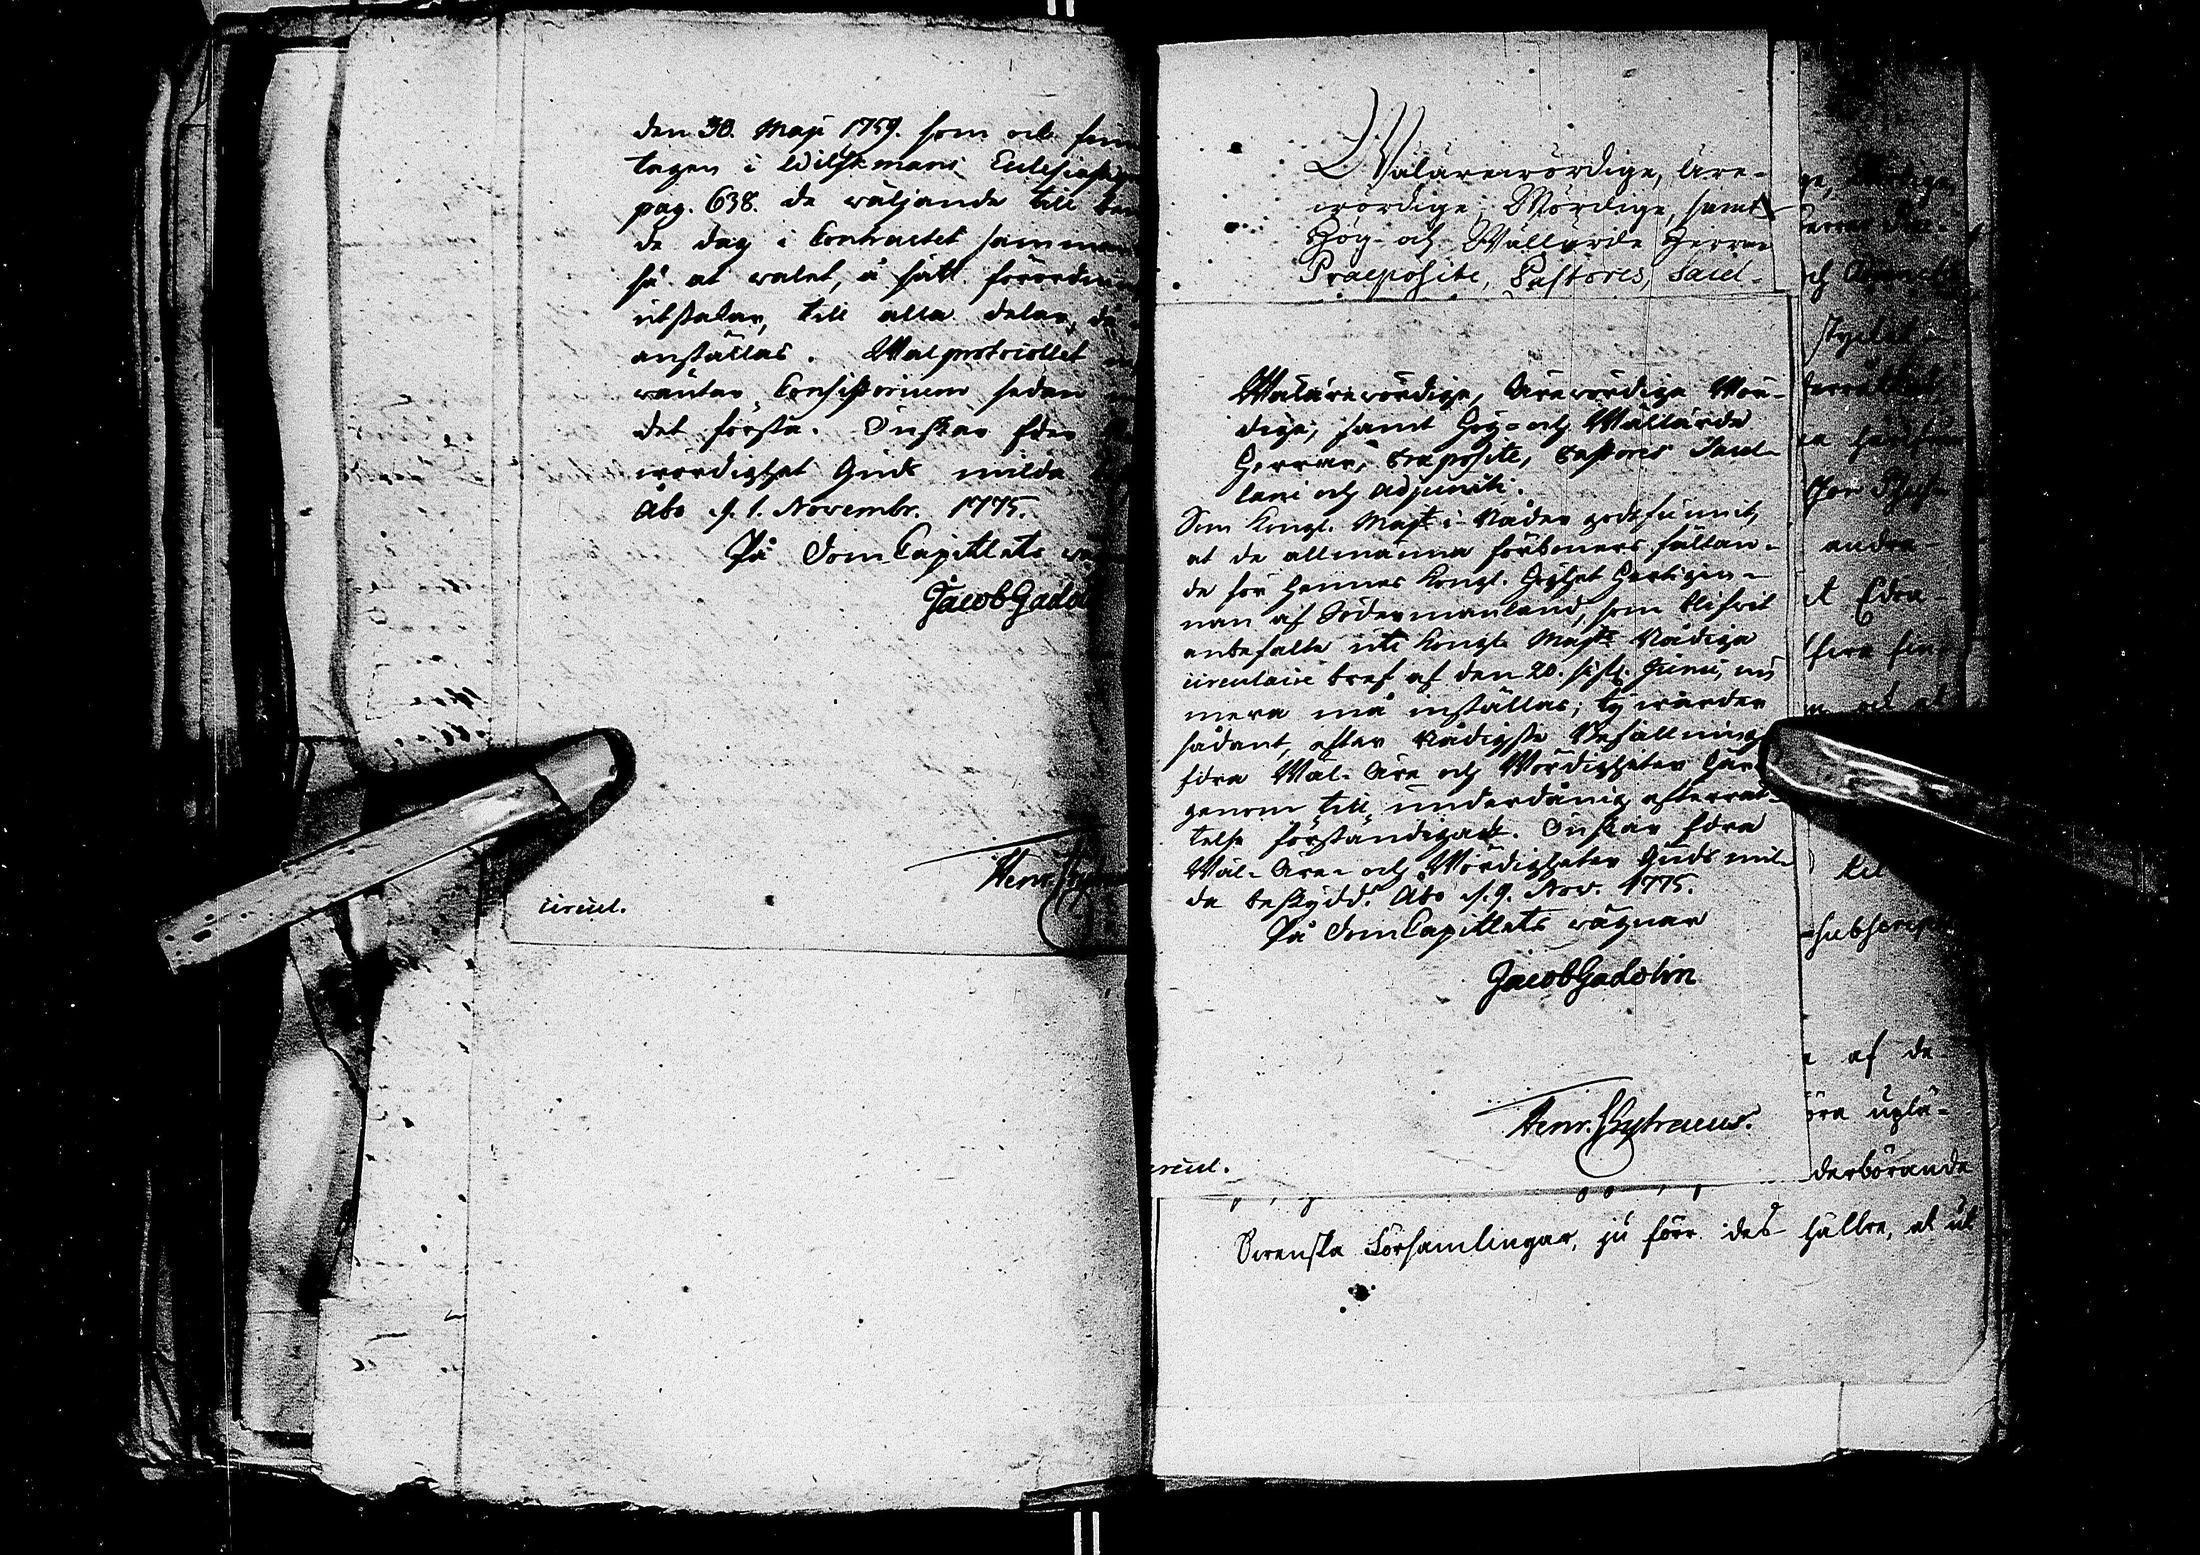 den 30. Maji 1759. som ock
tagen i Wilskmans Eclesiast
pag. 638. de wäljande till
de dag i Contractet samman
så at walet, å sätt förordn
utstakar, till alla delar, då
anställas. Walprotocollet
wäntar Consistorium sedan
det första. Önskar Eder
wördighet Guds milda
Åbo d. 1. Novembr. 1775.
På DomCapitlets
Jacob Gadol
Henr.
circul.
Wälärewördige, Äre-
wördige, Wördige, samt
Hög- och Wällärde Herrar
Praeposite, Pastores, Sacel-
Wälärewördige, Ärewördige Wör-
dige, samt Hög- och Wällärde
Herrar, Præposite, Pastores Sacel-
lani och Adjuncti.
Som Kongl. Majt i Nåder godtfunnit,
at de allmänna förböners hållan-
de för Hennes Kongl. Höghet Hertigin-
nan af Södermanland, som blifwit
anbefalte uti Kongl. Majts Nådiga
circulaire bref af den 20. sistl. Junii, nu
mera må inställas; ty warder
sådant, efter Nådigste Befallning
Edra Wäl- Äre och Wördigheter här
genom till underdånig efterrät-
telse förständigadt. Önskar Edra
Wäl- Äre- och Wördigheter Guds mil-
da beskydd. Åbo d. 9. Nov. 1775.
På DomCapitlets wägnar
Jacob Gadolin
Henr. Lytraeus.
rcul.
andra
af de
öra uplä-
derbörande
Swenska Församlingar, ju förr des hällre, at ut